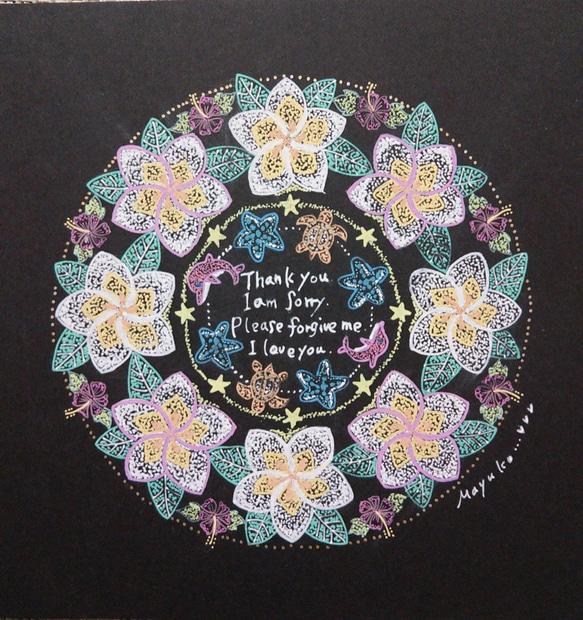 Thank you
I am sorry.
Please forgive me.
I love you
Mayuko...♥♥♥